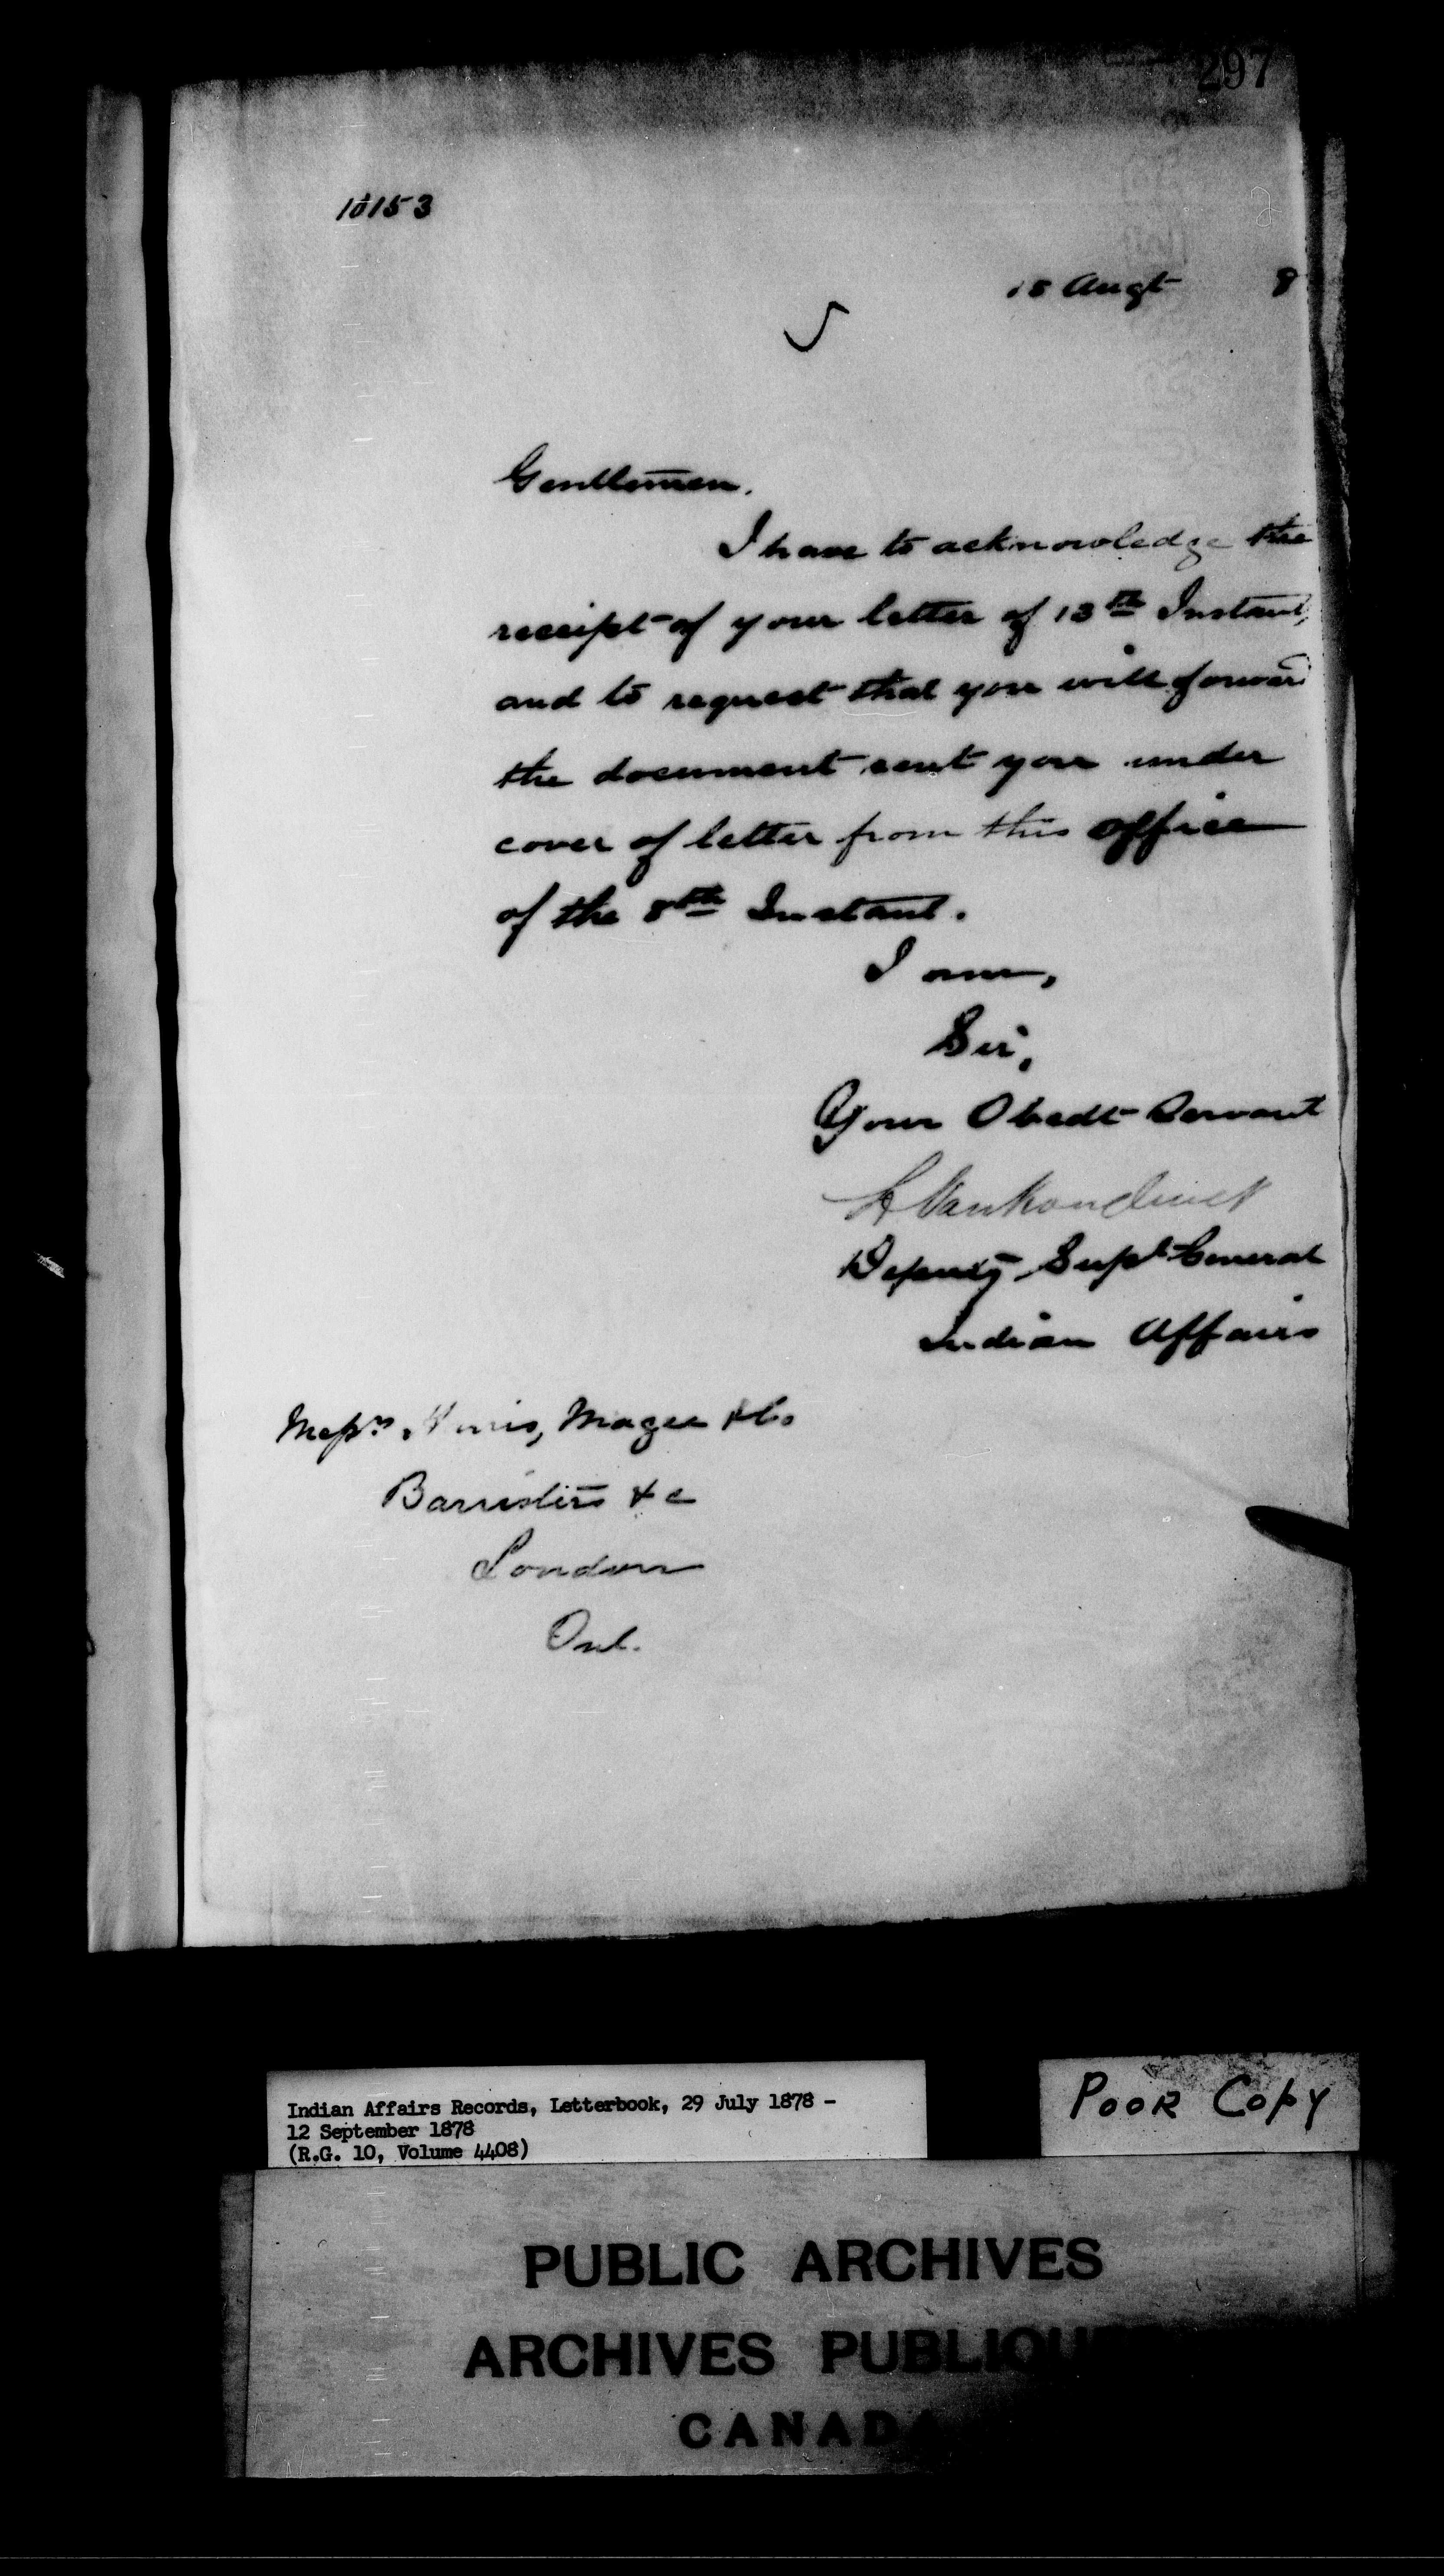 297
10153
Augt 8
Gentlemen.
I have to acknowledge the
receipt of your letter of 13th Instant,
and to request that you will forward
the document sent you under
cover of letter from this office
of the 8th Instant.
I am,
Sir,
Your Obedt Servant
L Vankoughnet
Deputy Supt General
Indian Affairs
Messrs Magee & Co
Barristers &c
London
Ont.
Indian Affairs Records, Letterbook, 29 July 1878 -
12 September 1878
(R.G. 10, Volume 4408)
POOR COPY
PUBLIC ARCHIVES
ARCHIVES PUBLIQU
CANADA